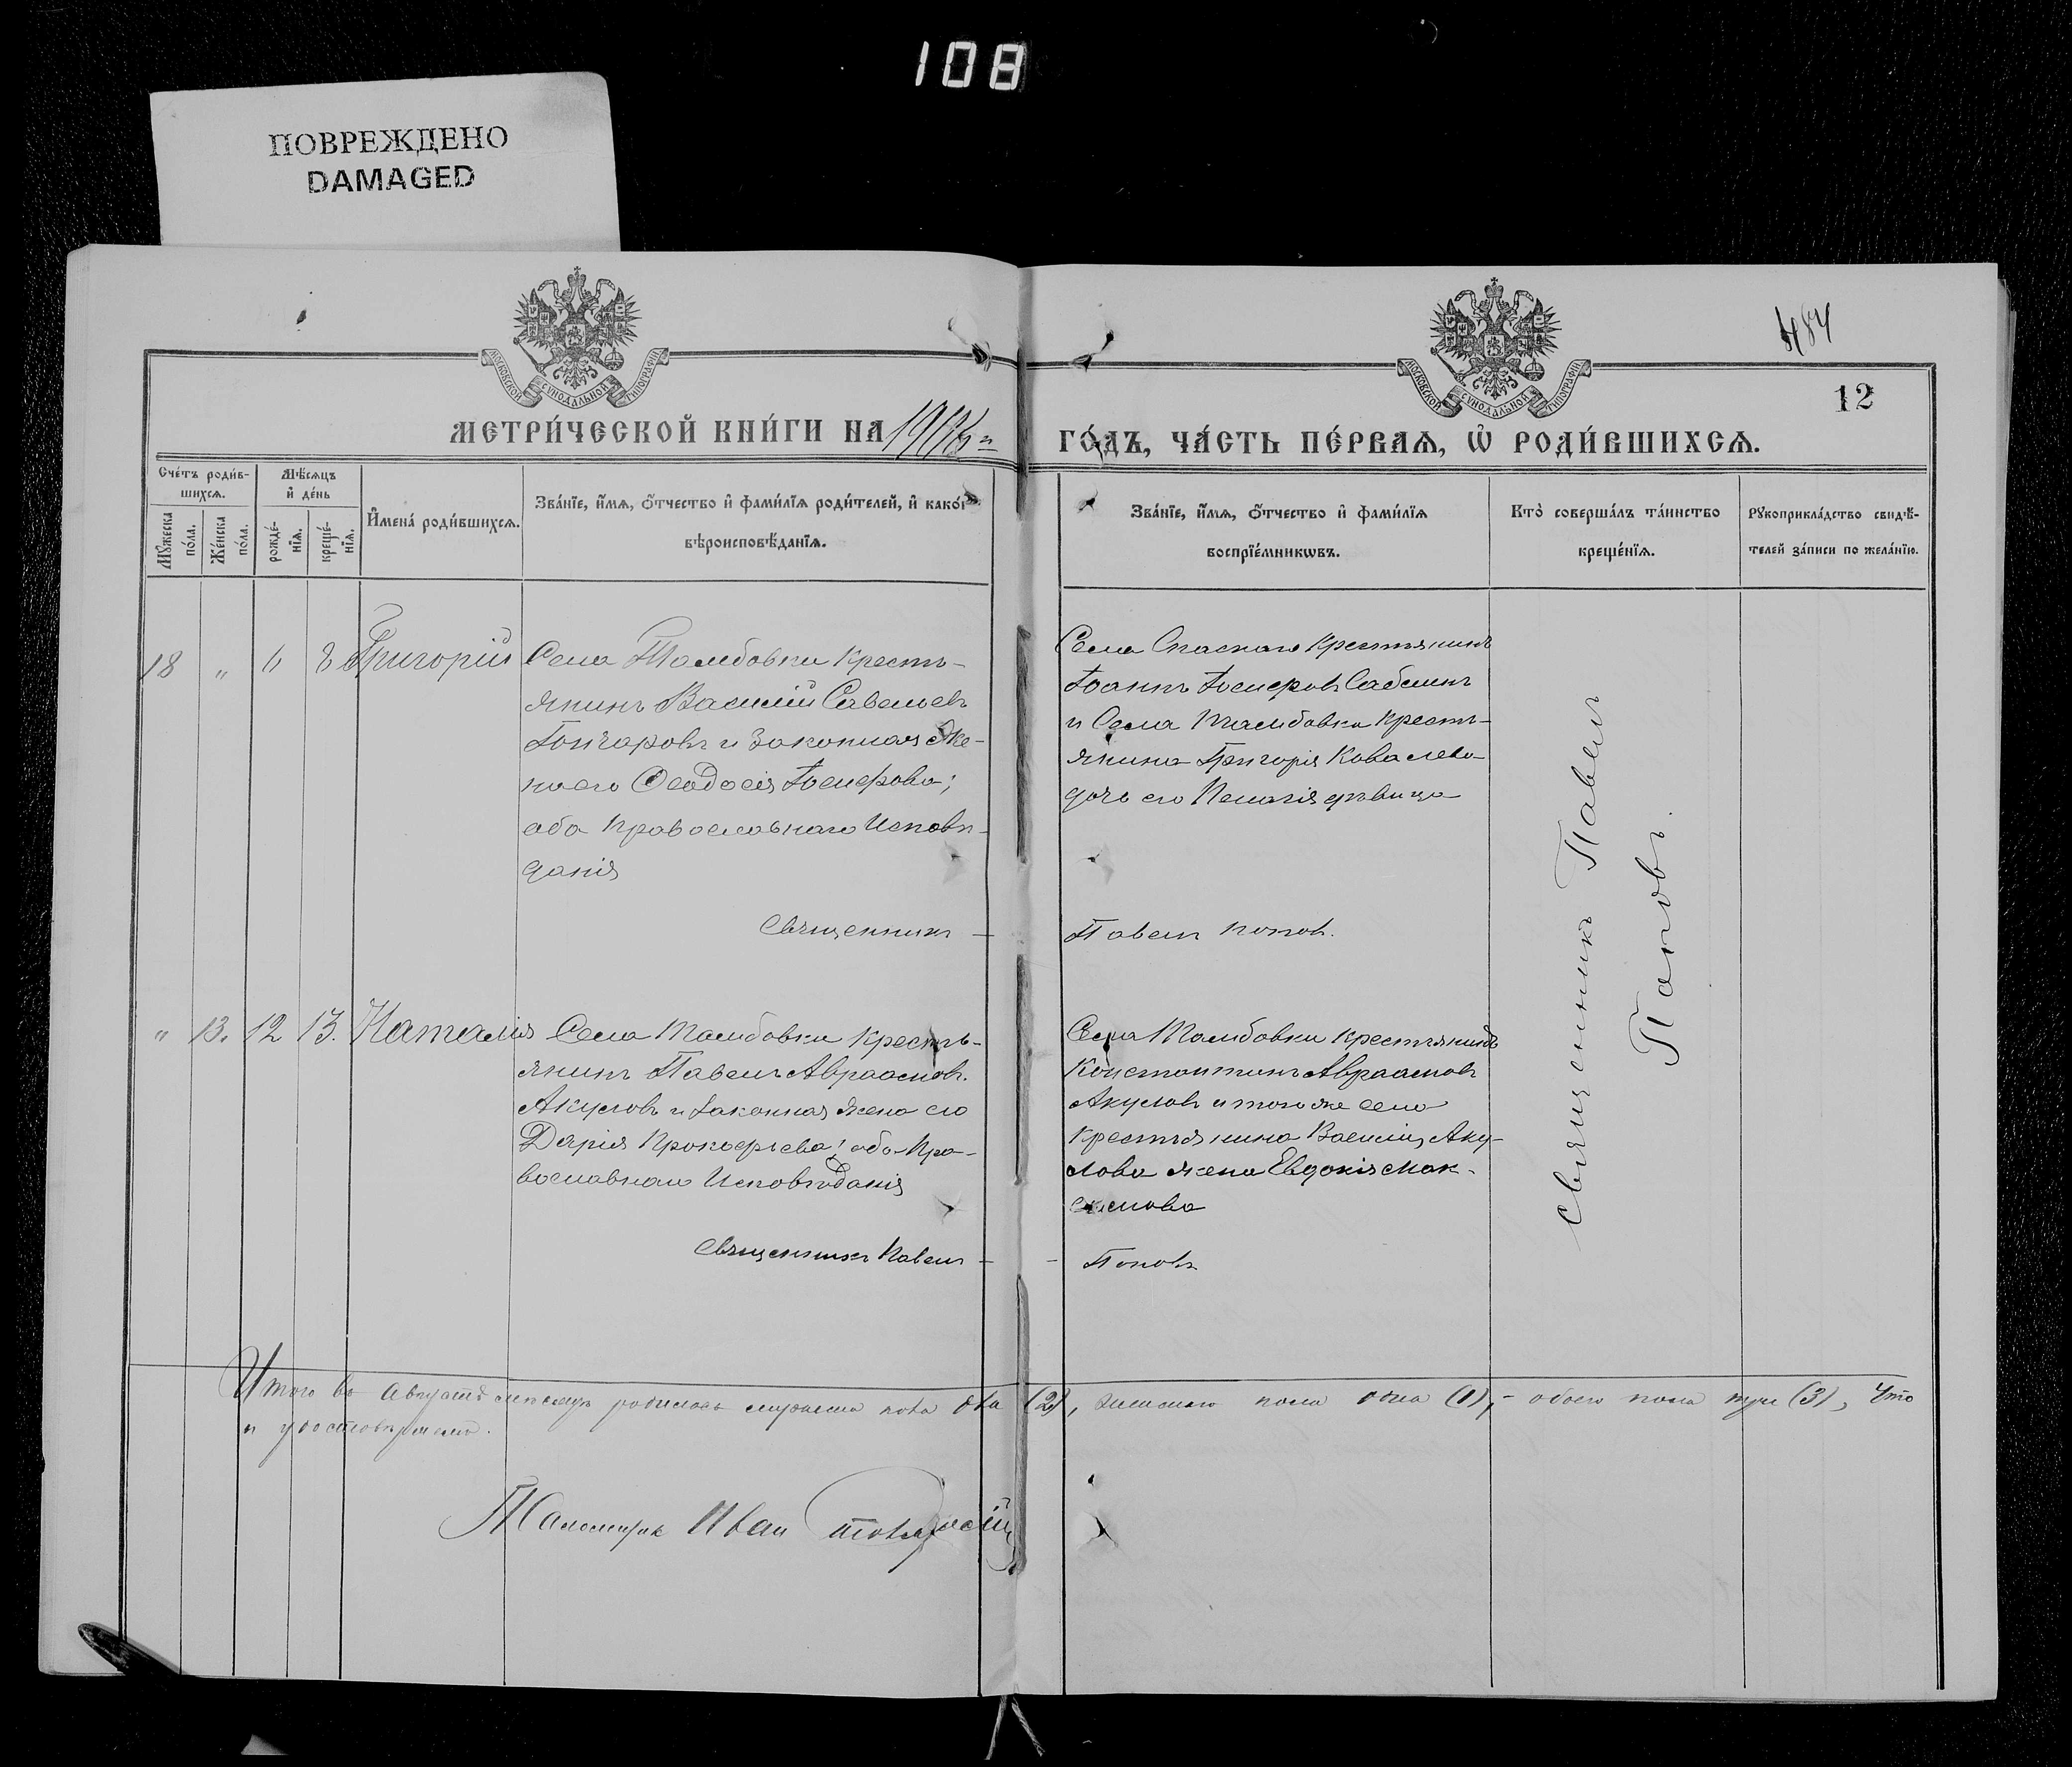 108
ПОВРЕЖДЕНО
DAMAGED
МОСКОВСКОЙ СѴНОДАЛЬНОЙ ТИПОГРАФІИ
МОСКОВСКОЙ СѴНОДАЛЬНОЙ ТИПОГРАФІИ
484
12
МЕТРИ́ЧЕСКОЙ КНИ́ГИ НА
ГО́ДЪ, ЧА́СТЬ ПЕ́РВАЯ, Ѡ҆ РОДИ́ВШИХСЯ.
Сче́тъ роди́в-
шихся.
Мѣ́сяцъ
и҆ де́нь
Мꙋ́жеска
по́ла.
Же́нска
по́ла.
рожде́-
нїя.
креще́-
нїя.
И҆мена̀ роди́вшихся.
Зва́нїе, и҆́мя, о҆́тчество и҆ фами́лїя роди́телей, и҆ како́гѡ
вѣроисповѣ́данїя.
Зва́нїе, и҆́мя, о҆́тчество и҆ фами́лїя
воспрїе́мникѡвъ.
Кто̀ соверша́лъ та́инство
креще́нїя.
Рꙋкоприкла́дство свидѣ́-
телей за́писи по жела́нїю.
18 „ 6 8 Григорій
Села Тамбовки Кресть-
янинъ Василій Савельевъ
Гончаровъ и законная Же-
на его Ѳеодосія Іосифова;
оба православнаго Исповѣ-
данія
Села Спаскаго Крестьянинъ
Іоаннъ Іосифовъ
и Села Тамбовки Кресть-
янина Григорія Ковалева
дочь его Пелагія дѣвица
Священникъ — Павелъ Поповъ.
Священникъ Павелъ
Поповъ.
„ 13. 12 13. Наталія
Села Тамбовки Кресть-
янинъ Павелъ Авраамовъ.
Акуловъ и законная жена его
Дарія Прокофьева; оба Пра-
вославнаго Исповѣданія
Села Тамбовки Крестьянинъ
Константинъ Авраамовъ
Акуловъ и того же села
Крестьянина Василія Аку-
лова жена Евдокія Мак-
симова
Священникъ Павелъ — - Поповъ
Итого въ Августѣ мѣсяцѣ родилось мужеска пола два (2), женскаго пола одна (1), - обоего пола три (3), Что
и удостовѣряемъ.
Псаломщик Иван